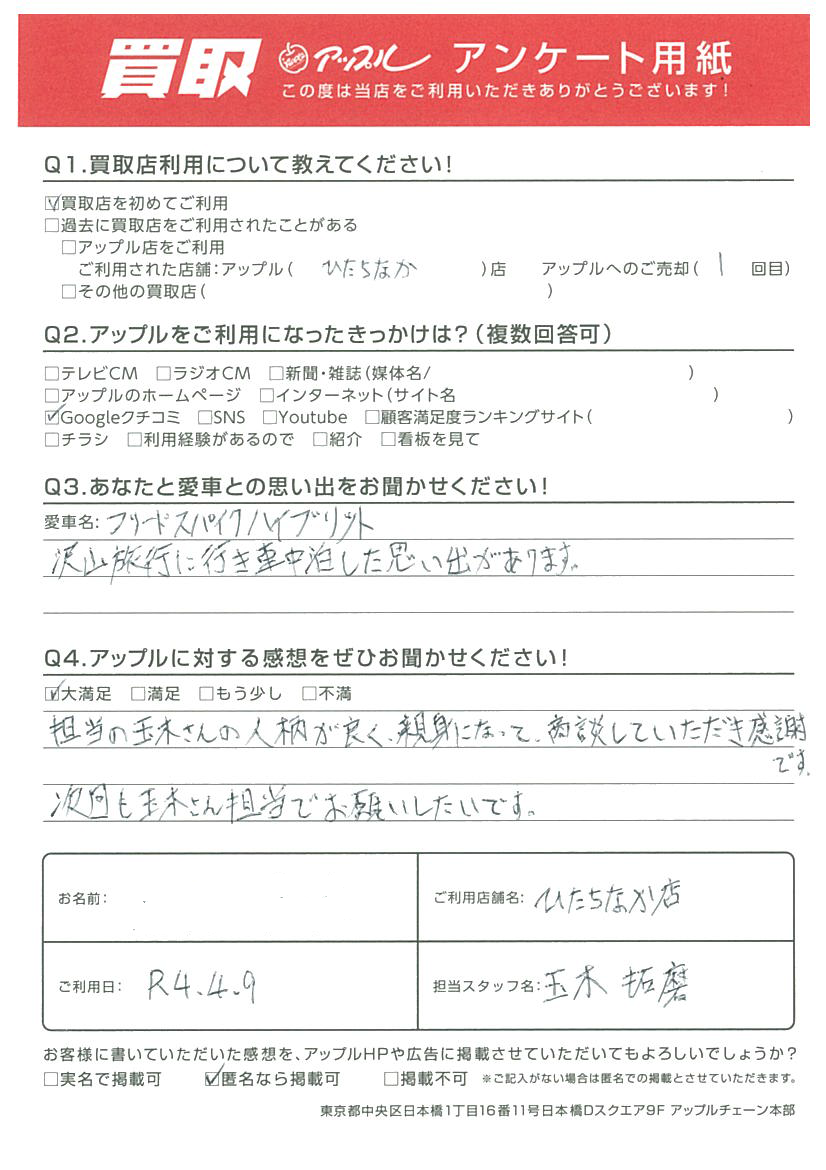 買取 アップル アンケート用紙
この度は当店をご利用いただきありがとうございます！
Q1.買取店利用について教えてください！
☑買取店を初めてご利用
□過去に買取店をご利用されたことがある
□アップル店をご利用
ご利用された店舗：アップル（ ひたちなか ）店 アップルへのご売却（ 1 回目）
□その他の買取店（ ）
Q2.アップルをご利用になったきっかけは？（複数回答可）
□テレビCM □ラジオCM □新聞・雑誌（媒体名/ ）
□アップルのホームページ □インターネット（サイト名 ）
☑Googleクチコミ □SNS □Youtube □顧客満足度ランキングサイト（ ）
□チラシ □利用経験があるので □紹介 □看板を見て
Q3.あなたと愛車との思い出をお聞かせください！
愛車名：フリードスパイクハイブリット
沢山旅行に行き車中泊した思い出があります。
Q4.アップルに対する感想をぜひお聞かせください！
☑大満足 □満足 □もう少し □不満
担当の玉木さんの人柄が良く、親身になって、商談していただき感謝
です。
次回も玉木さん担当でお願いしたいです。
お名前： ご利用店舗名：ひたちなか店
ご利用日： R4.4.9 担当スタッフ名：玉木 拓磨
お客様に書いていただいた感想を、アップルHPや広告に掲載させていただいてもよろしいでしょうか？
□実名で掲載可 ☑匿名なら掲載可 □掲載不可 ※ご記入がない場合は匿名での掲載とさせていただきます。
東京都中央区日本橋1丁目16番11号日本橋Dスクエア9F アップルチェーン本部